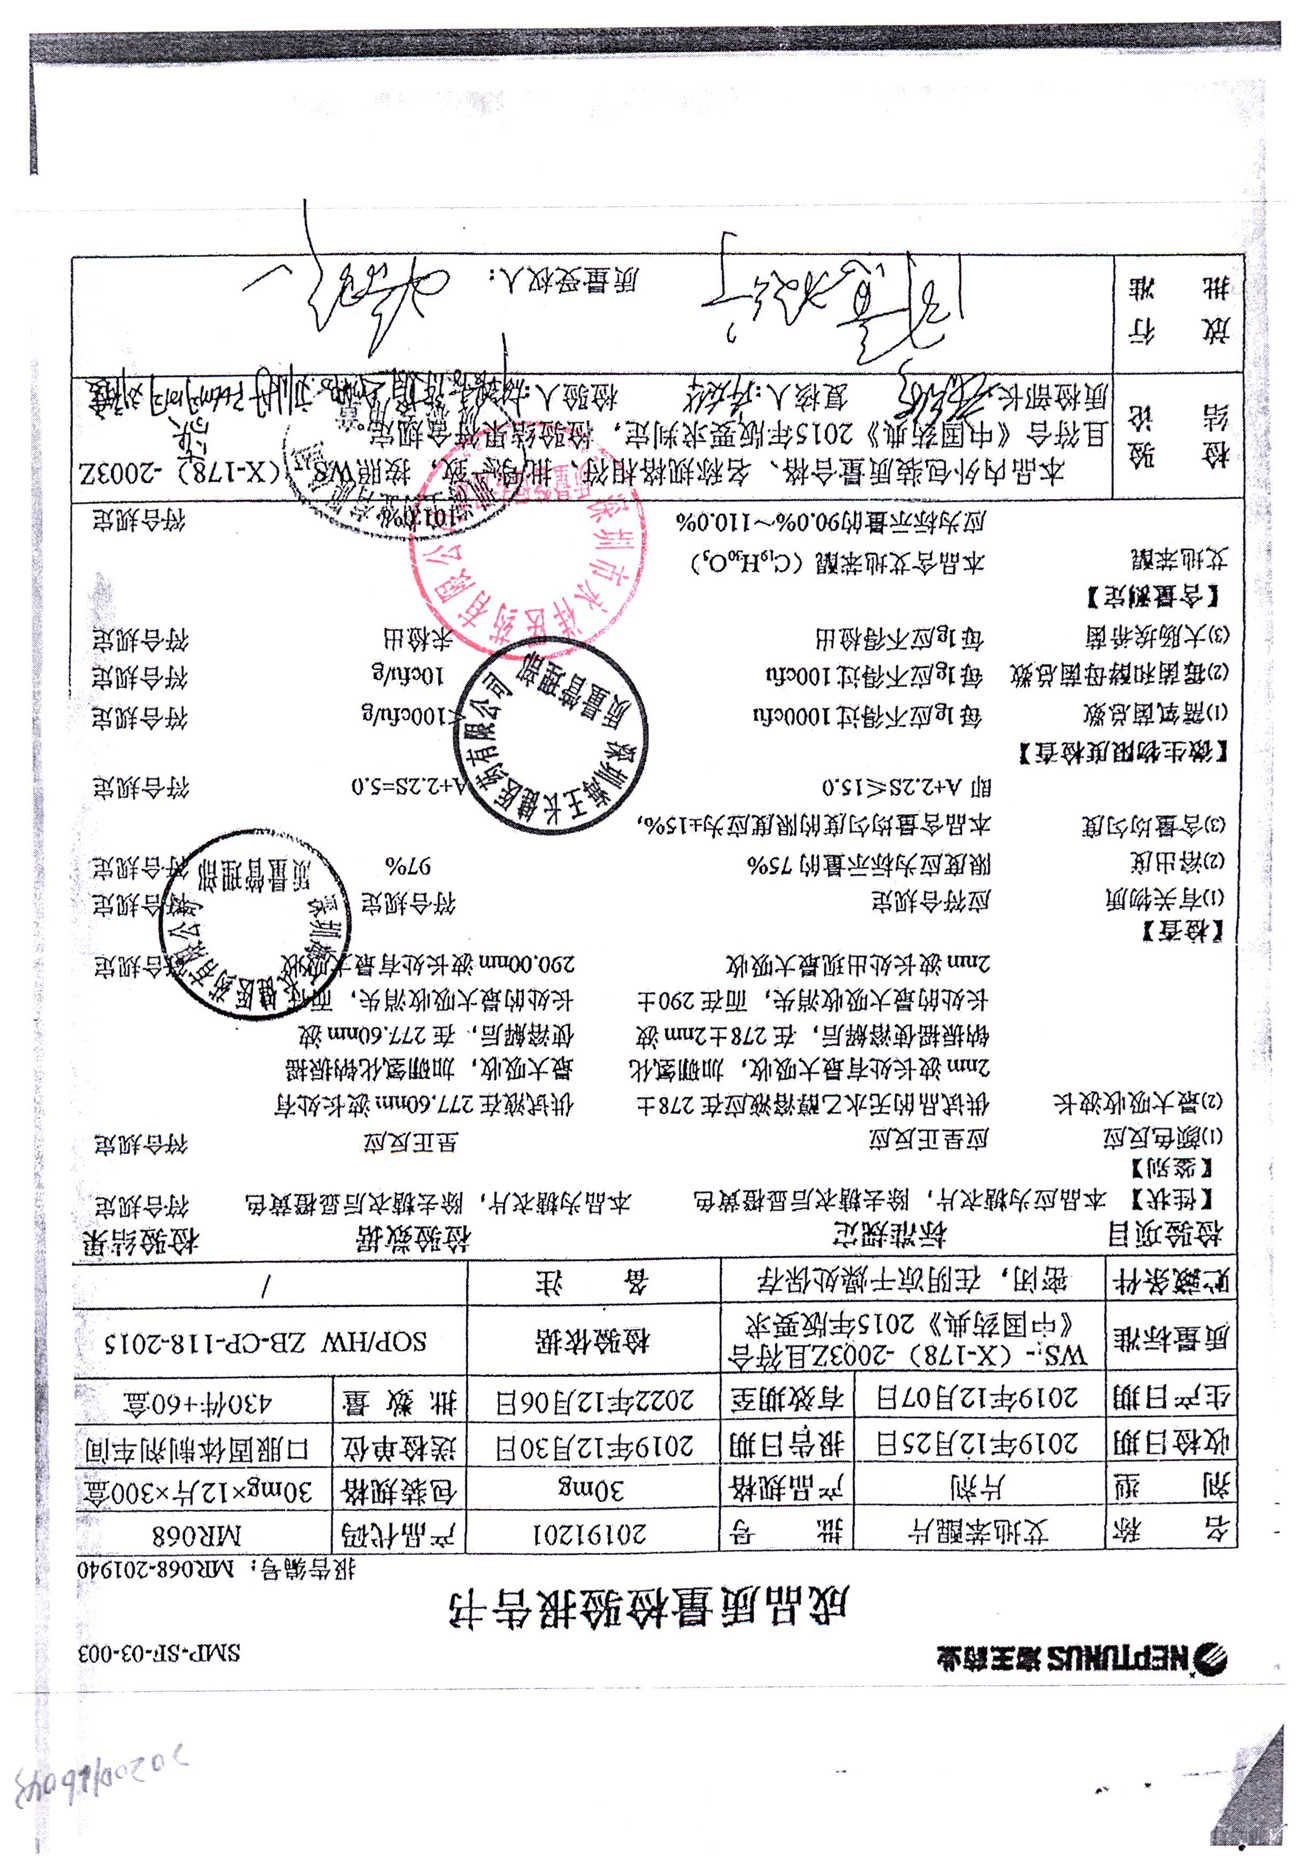 NEPTUNUS 海王药业 SMP-SF-03-003
成品质量检验报告书
报告编号：MR068-201940
名 称 艾地苯醌片 批 号 20191201 产品代码 MR068
剂 型 片剂 产品规格 30mg 包装规格 30mg×12片×300盒
收检日期 2019年12月25日 报告日期 2019年12月30日 送检单位 口服固体制剂车间
生产日期 2019年12月07日 有效期至 2022年12月06日 批 数 量 430件+60盒
质量标准 WS₁-（X-178）-2003Z且符合《中国药典》2015年版要求 检验依据 SOP/HW ZB-CP-118-2015
贮藏条件 密闭，在阴凉干燥处保存 备 注 /
检验项目 标准规定 检验数据 检验结果
【性状】 本品应为糖衣片，除去糖衣后显橙黄色 本品为糖衣片，除去糖衣后显橙黄色 符合规定
【鉴别】
(1)颜色反应 应呈正反应 呈正反应 符合规定
(2)最大吸收波长 供试品的无水乙醇溶液应在278± 供试液在277.60nm波长处有
2nm波长处有最大吸收，加硼氢化 最大吸收，加硼氢化钠振摇
钠振摇使溶解后，在278±2nm波 使溶解后，在277.60nm波
长处的最大吸收消失，而在290± 长处的最大吸收消失，而在
2nm波长处出现最大吸收 290.00nm波长处有最大吸收 符合规定
【检查】
(1)有关物质 应符合规定 符合规定 符合规定
(2)溶出度 限度应为标示量的75% 97% 符合规定
(3)含量均匀度 本品含量均匀度的限度应为±15%，
即 A+2.2S≤15.0 A+2.2S=5.0 符合规定
【微生物限度检查】
(1)需氧菌总数 每1g应不得过1000cfu <100cfu/g 符合规定
(2)霉菌和酵母菌总数 每1g应不得过100cfu 10cfu/g 符合规定
(3)大肠埃希菌 每1g应不得检出 未检出 符合规定
【含量测定】
艾地苯醌 本品含艾地苯醌（C₁₉H₃₀O₅）
应为标示量的90.0%～110.0% 符合规定
检验结论 本品内外包装质量合格、名称规格相符、批号一致，按照WS₁-（X-178）-2003Z
且符合《中国药典》2015年版要求判定，检验结果符合规定。
质检部长 复核人： 检验人：
放行批准 质量受权人：
深圳海王长健医药有限公司
质量管理部
深圳海王长健医药有限公司
质量管理部
深圳市永祥医药有限公司